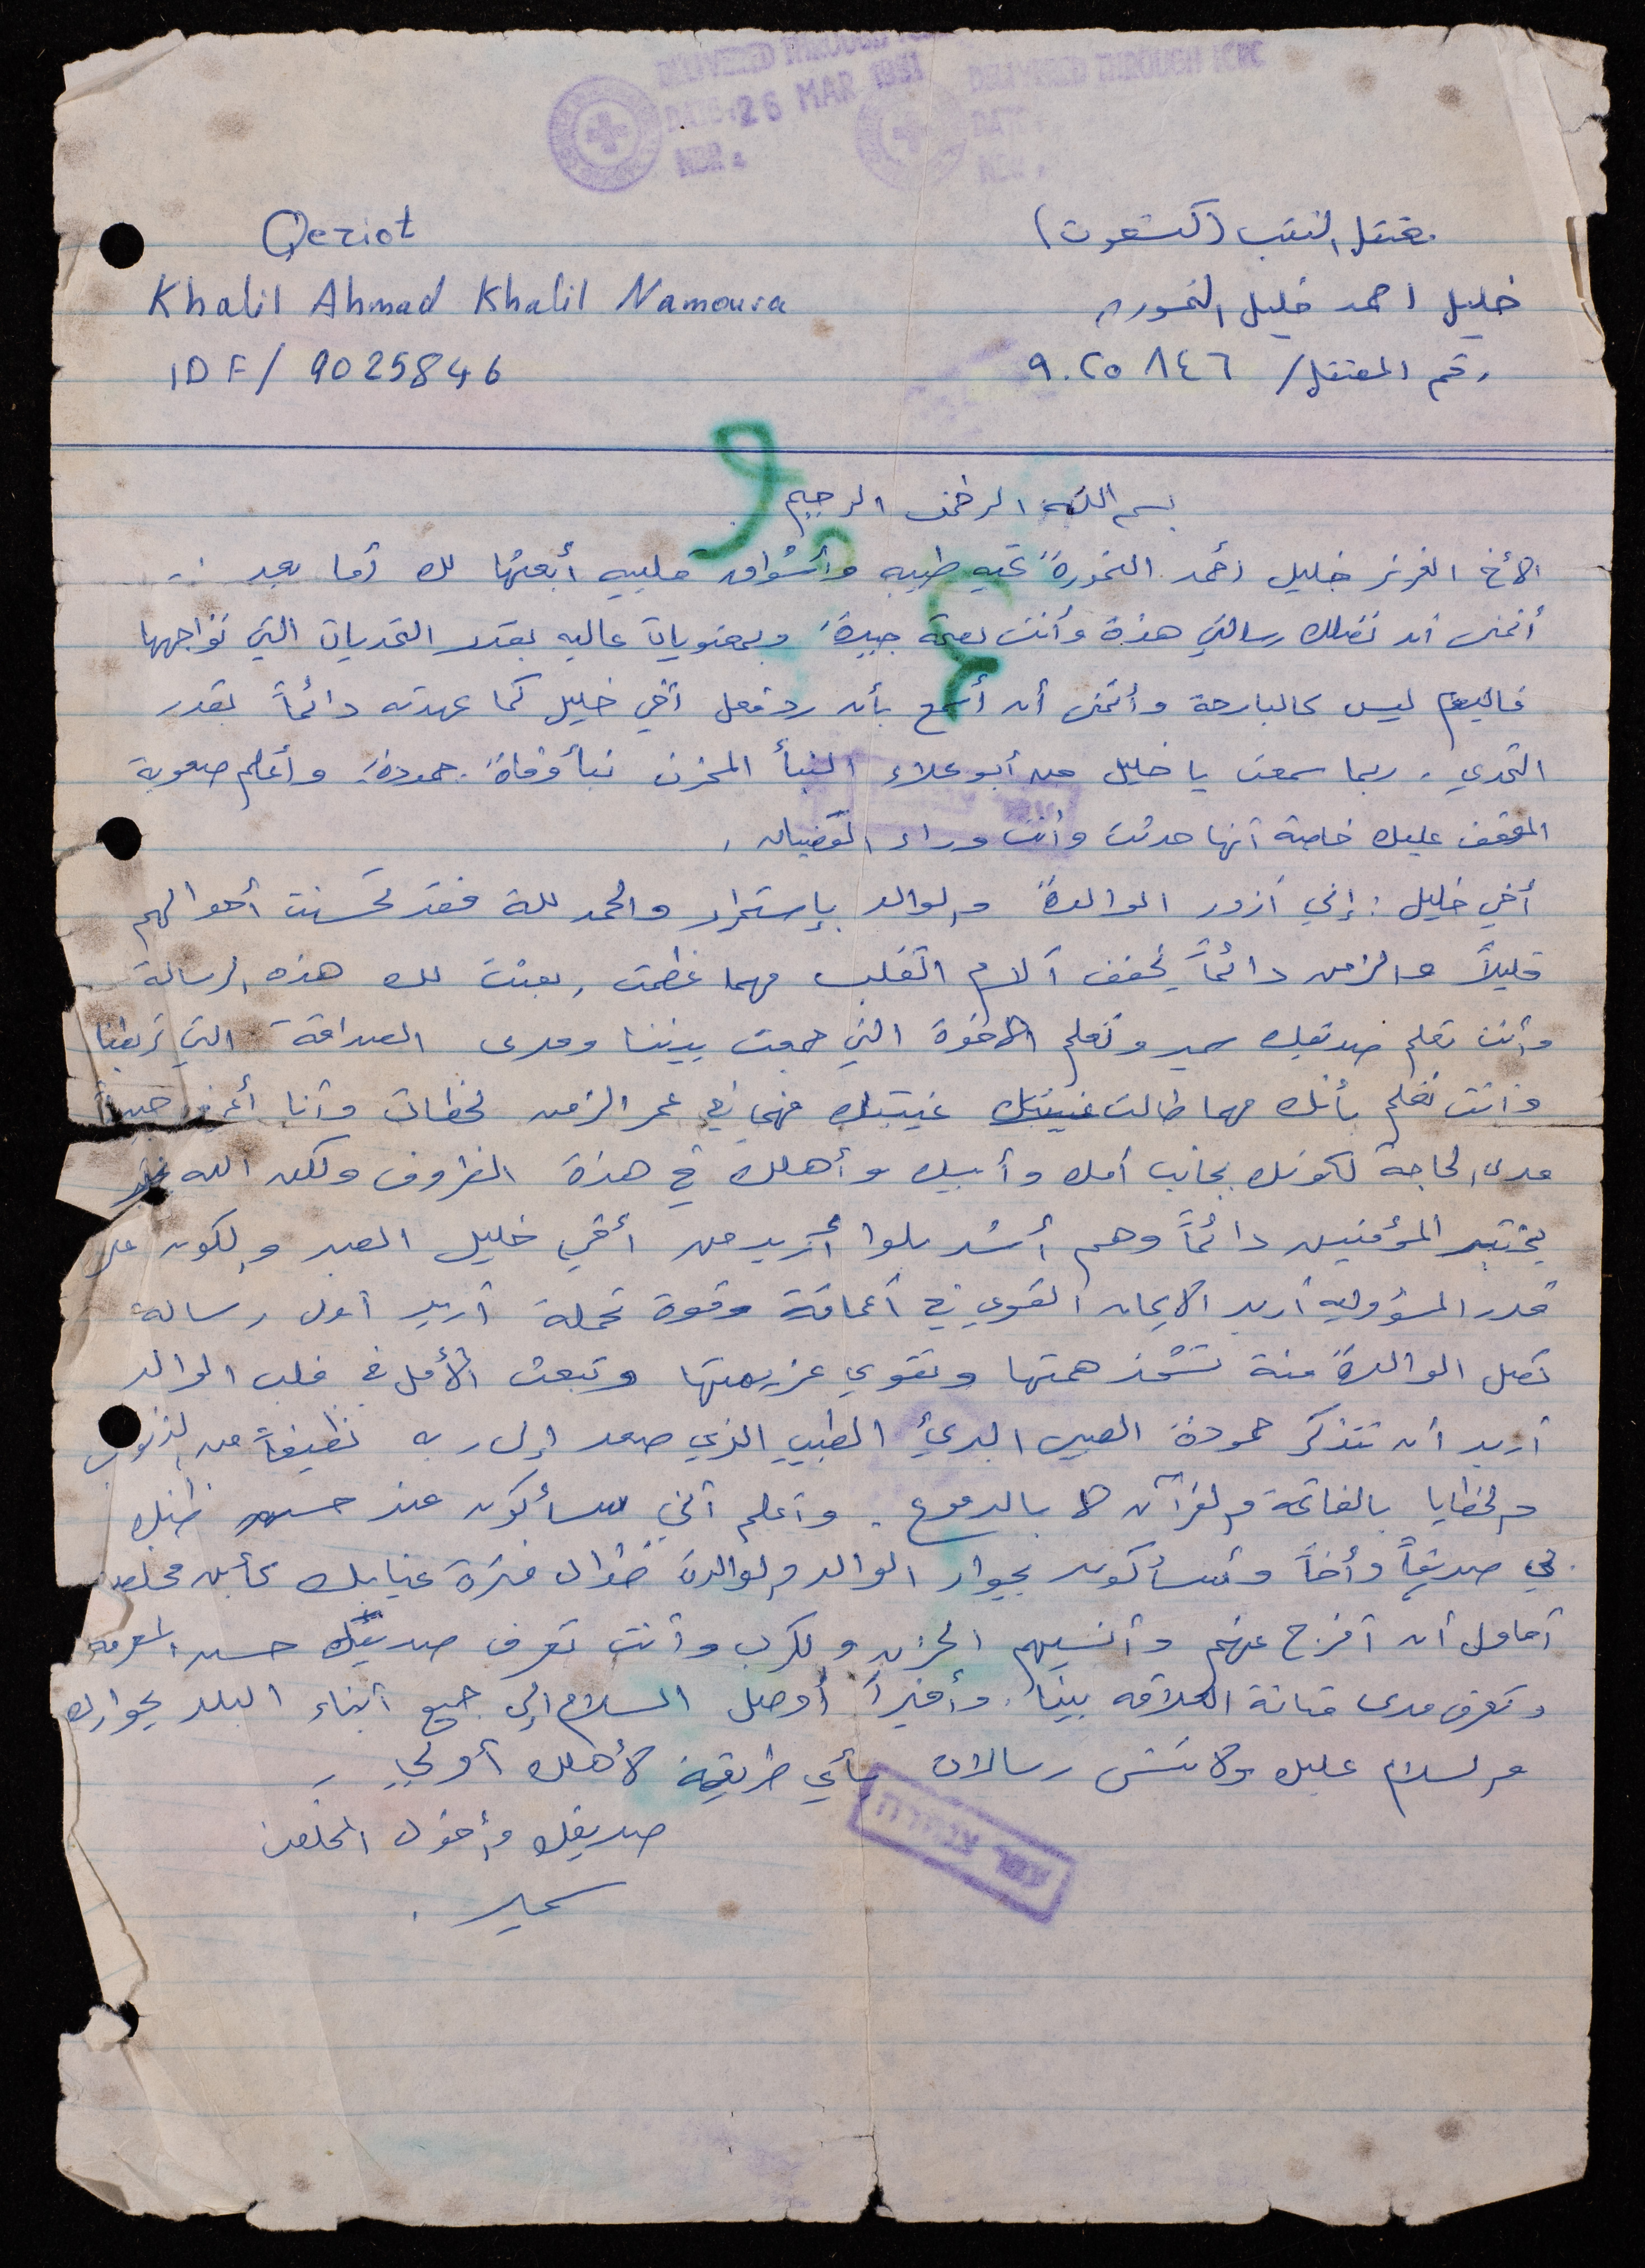 DELIVERED THROUGH ICRC
DATE: 26 MAR 1991
NBR:
DELIVERED THROUGH ICRC
DATE:
NBR:
معتقل النقب (كتسعوت)
Qeziot
خليل احمد خليل النموره
Khalil Ahmad Khalil Namoura
رقم المعتقل/ ٩٠٢٥٨٤٦
IDF/ 9025846
بسم الله الرحمن الرحيم
الأخ العزيز خليل أحمد النمورة تحيه طيبه وأشواق قلبيه أبعثها لك أما بعد :-
أتمنى أن تصلك رسالتي هذة وأنت بصحة جيدة وبمعنويات عاليه بقدر التحديات التي تواجهها
فاليوم ليس كالبارحة وأتمنى أن أسمع بأن رد فعل أخي خليل كما عهدته دائماً بقدر
التحدي . ربما سمعت يا خليل من أبو علاء النبأ المحزن نبأ وفاة حمودة وأعلم صعوبة
الموقف عليك خاصة أنها حدثت وأنت وراء القضبان .
أخي خليل : إني أزور الوالدة والوالد بإستمرار والحمد للة فقد تحسنت أحوالهم
قليلاً والزمن دائماً يخفف آلام القلب مهما عظمت , بعثت لك هذه الرسالة
وأنت تعلم صديقك سمير وتعلم الاخوة التي جمعت بيننا ومدى الصداقة التي تربطنا
وأنت تعلم بأنك مهما طالت غيبتك غيبتك فهي في عمر الزمن لحظات وأنا أعرف جيداً
مدى الحاجة لكونك بجانب أمك وأبيك وأهلك في هذة الظروف ولكن الله
يختبر المؤمنين دائماً وهم أشد بلوا أريد من أخي خليل الصبر والكون على
قدر المسؤوليه أريد الايمان القوي في أعماقة وقوة تحملة أريد أول رسالة
تصل الوالدة منة تشحذ همتها وتقوي عزيمتها وتبعث الأمل في قلب الوالد
أريد أن تتذكر حمودة الصبي البريئ الطيب الذي صعد إلى ربه نظيفاً من الذنوب
والخطايا بالفاتحة والقرآن لا بالدموع . وأعلم أنني سأكون عند حسن ظنك
بي صديقاً وأخاً وسأكون بجوار الوالد والوالدة طوال فترة غيابك كأبن مخلص
أحاول أن أفرج عنهم وأنسيهم الحزن والكرب وأنت تعرف صديقك حسن المعرفه
وتعرف مدى متانة العلاقه بيننا . وأخيراً أوصل السلام إلى جميع أبناء البلد بجوارك
والسلام عليك ولا تنسى رسالات بأي طريقة لأهلك أو لي .
صديقك وأخوك المخلص
سمير .